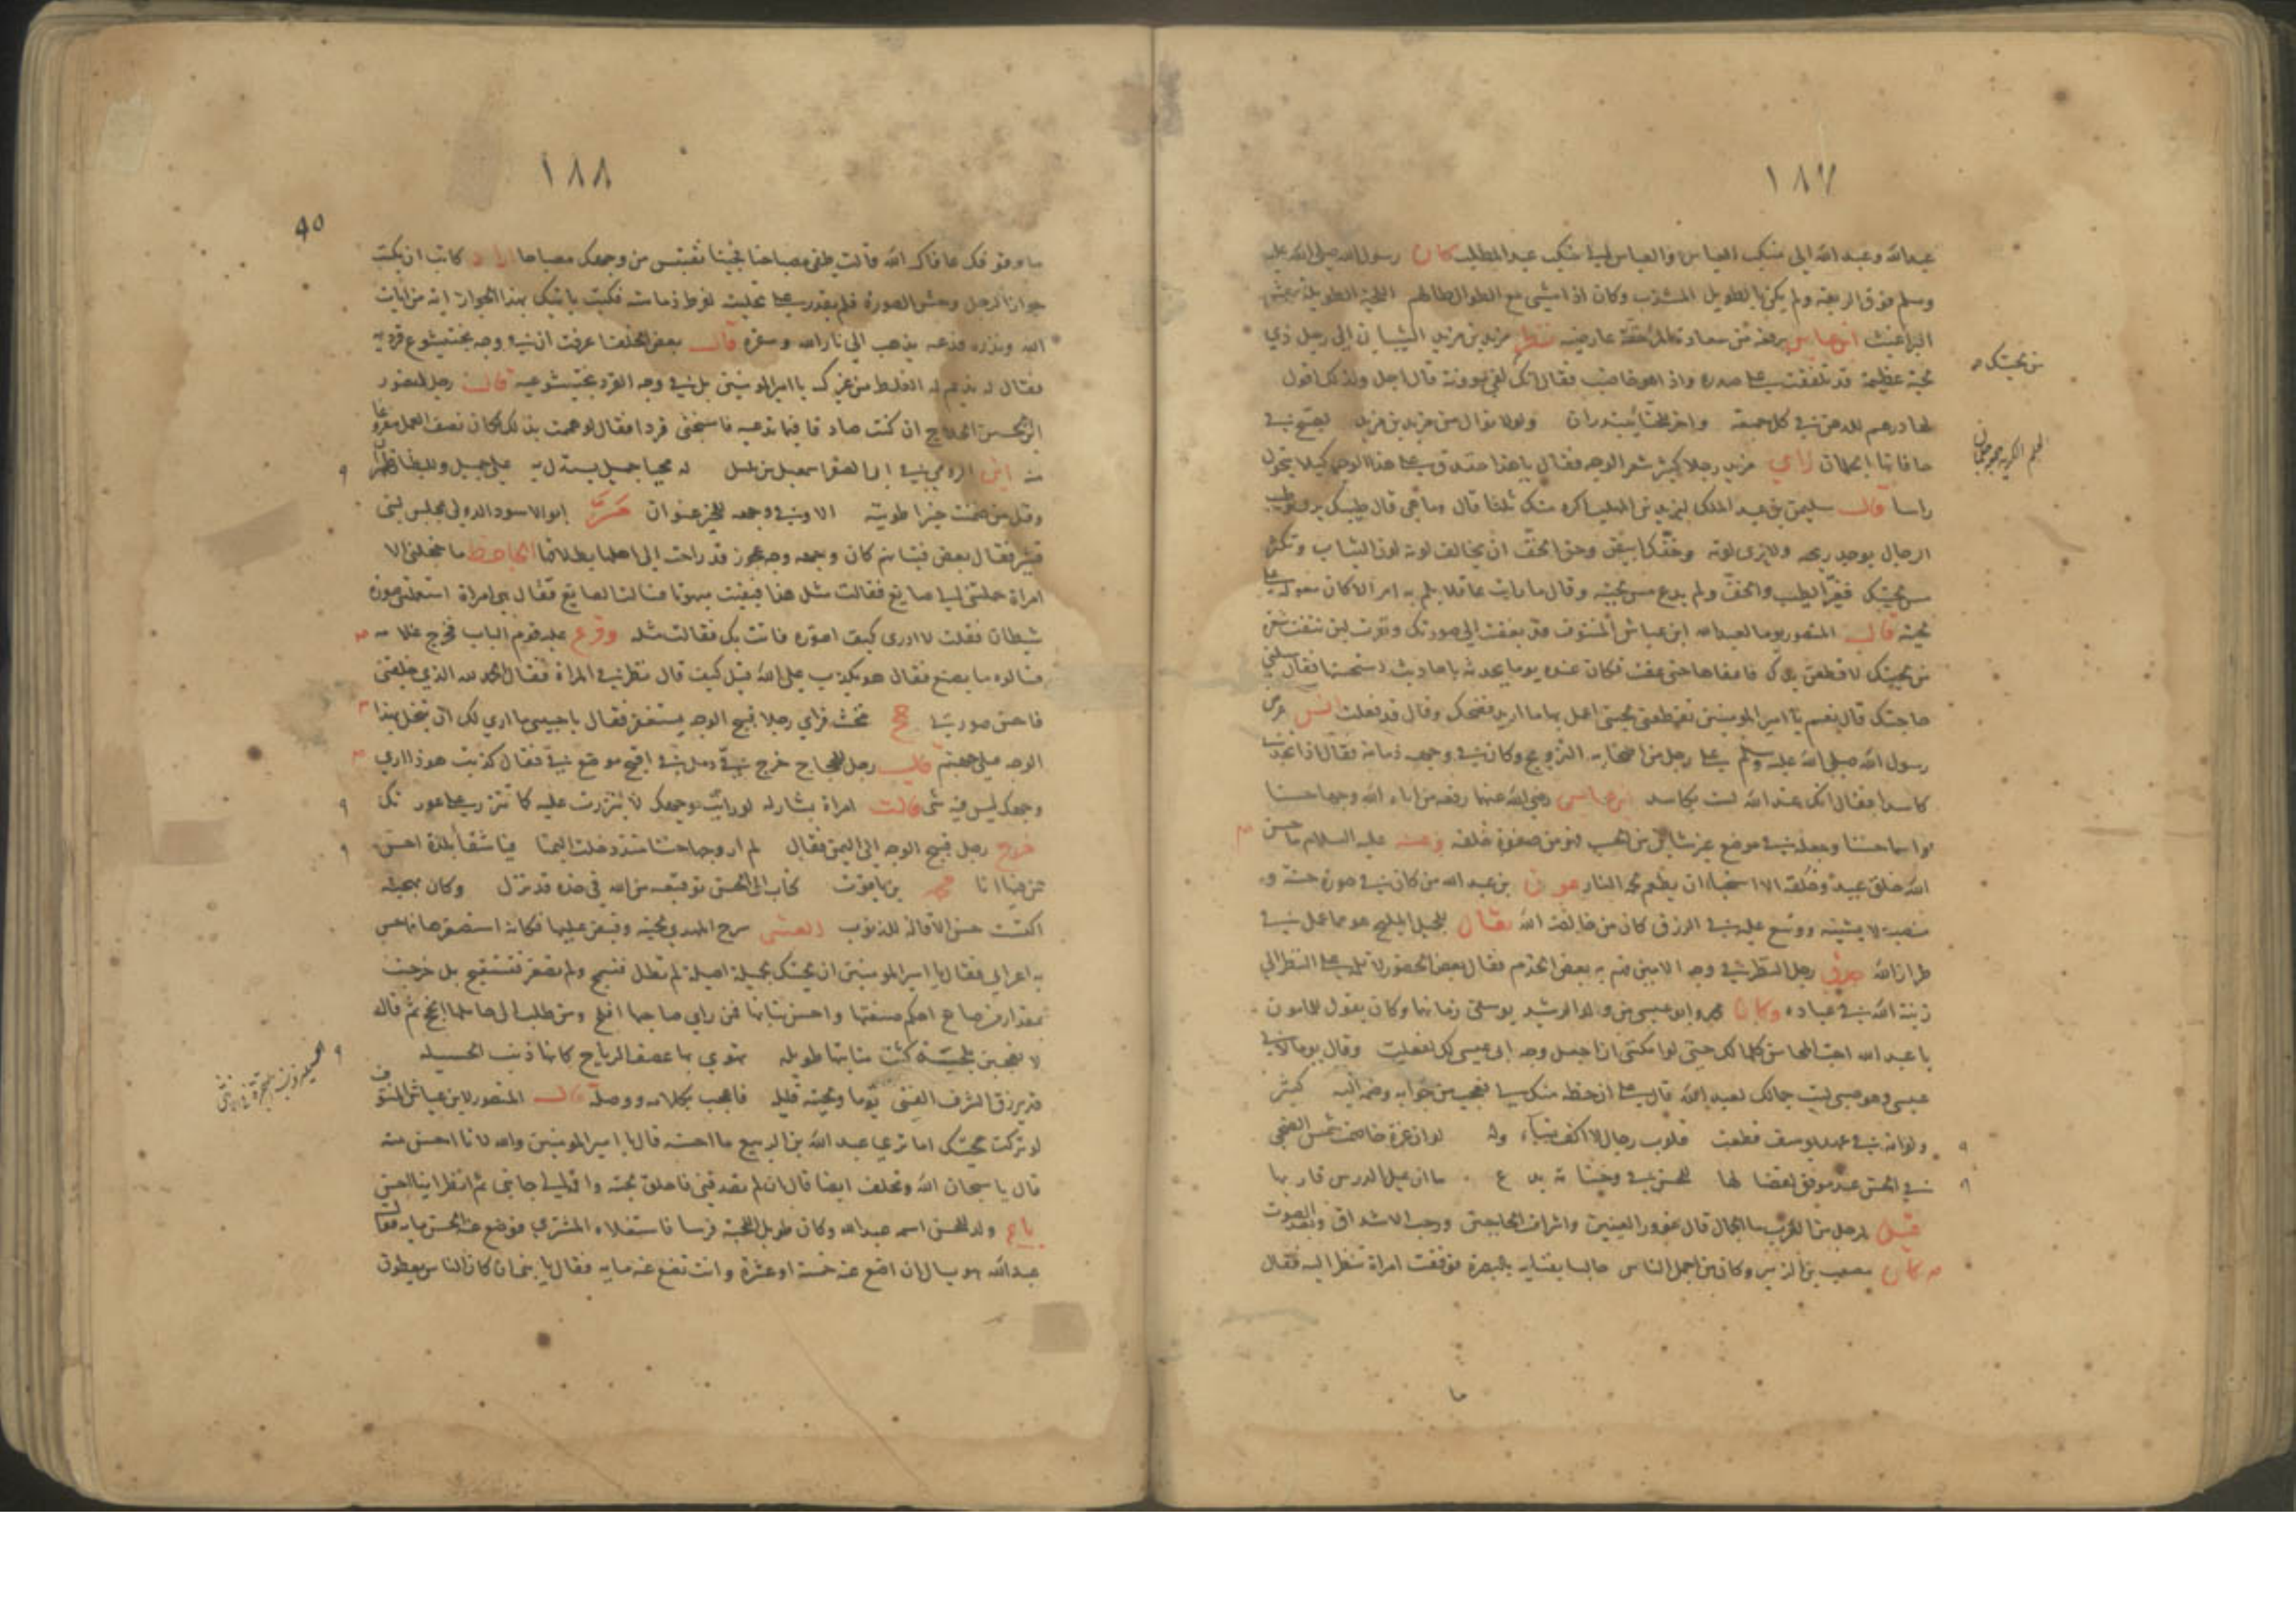 ١٨٧
عبدالله وعبد الله الى منكب العباس والعباس الى منكب عبد المطلب كان رسول الله صلى الله عليه
وسلم فوق الربعة ولم يكن بالطويل المشذب وكان اذا مشى مع الطوال طالهم اللحية الطويلة عش
البراغيث ابن عباس يرفعه من سعادة المرء خفة عارضيه نظر مزيد بن مزيد الشيباني الى رجل ذي
لحية عظيمة قد تلففت على صدره واذا هو خاضب فقال انك لفي مؤونة قال اجل ولذلك اقول
لها درهم للدهن في كل جمعة واخر للحناء يبتدران ولولا نوال من مزيد بن مزيد لصوت في
حافاتها الجلمان راي مزيد رجلا كثير شعر الوجه فقال يا هذا خندق على هذا الوجه كيلا يتحول
راسا قال سليمن بن عبد الملك ليزيد بن المهلب اكره منك ثلثا قال وما هي قال طيبك يرى وطيب
الرجال يوجد ريحه ولا يرى لونه وخفك ابيض وحق الخف ان يخالف لونه لون الثياب وتكثر
مس لحيتك فغير الطيب والخف ولم يدع مس لحيته وقال ما رايت عاقلا يلم به امر الا كان معوله على
لحيته قال المنصور يوما لعبد الله ابن عياش المنتوف قد بغضت الى صورتك ونذرت لئن نتفت شعرة
من لحيتك لاقطعن يدك فاعفاها حتى عفت فكان عنده يوما يحدثه باحاديث استحسنها فقال سلني
حاجتك قال نعم يا امير المومنين تقطعني لحيتي اعمل بها ما اريد فضحك وقال قد فعلت انس عرض
رسول الله صلى الله عليه وسلم على رجل من اصحابه التزويج وكان في وجهه دمامة فقال اذا تجدني
كاسدا فقال انك عند الله لست بكاسد ابن عباس رضي الله عنهما رفعه من اتاه الله وجها حسنا
واسما حسنا وجعله في موضع غير شائن من الحسب فهو من صفوة خلقه وعنه عليه السلام ما حسن
الله خلق عبد وخلقه الا استحيا ان يطعم لحمه النار عون بن عبد الله من كان في صورة حسنة و
منصب لا يشينه ووسع عليه في الرزق كان من خالصة الله يقال للجميل المليح هو مما عمل في
طراز الله صوفي رجل النظر في وجه الامين فهم به بعض الخدم فقال بعض الحضور لا تلمه على النظر الي
زينة الله في عباده وكان هو وابو عيسى من ولد الرشيد يوسفي زمانهما وكان يقول للمامون
يا عبد الله احب المحاسن كلها لك حتى لو امكنني ان اجعل وجه ابي عيسى لك لفعلت وقال يوما لابي
عيسى وهو صبي ليت جمالك لعبد الله قال على ان حظه منك لي فعجب من جوابه وضمه اليه كثير
ولو انه في عهد يوسف قطعت قلوب رجال لا اكف نساء وله لو ان عزة خاصمت شمس الضحى
في الحسن عند موفق لقضا لها
قيل لرجل من العرب ما الجمال قال غؤور العينين واشراف الحاجبين ورحب الاشداق وبعد الصوت
كان مصعب بن الزبير وكان من اجمل الناس جالسا بفنايه بالبصرة فوقفت امراة تنظر اليه فقال
من لحيتك
ما
١٨٨
ما وقوفك عافاك الله قالت طفي مصباحنا فجئنا نقتبس من وجهك مصباحا اراد كاتب ان يكتب
جواز الرجل وحش الصورة فلم يقدر على تحليته لفرط دمامته فكتب ياتيك بهذا الجواز اية من ايات
الله ونذره فدعه يذهب الى نار الله وسقره قال بعض الخلفا عرفت ان في وجه بختيشوع قردية
فقال له نديم له الغلط من غيرك يا امير المومنين بل في وجه القرد بختيشوعية قال رجل لمنصور
ابن الحسين الحلاج ان كنت صادقا فيما تدعيه فامسخني قردا فقال لو هممت بذلك لكان نصف العمل مفروغا
منه ابن الرومي في ابي الصقر اسمعيل بن بلبل له محيا جميل يستدل به على جميل وللبطنان ظهران
وقل من ضمنت خيرا طويته الا وفي وجهه للخير عنوان مر ابو الاسود الدولى بمجلس لبني
قشير فقال بعض فتيانهم كان وجهه وجه عجوز قد راحت الى اهلها بطلاقها الجاحظ ما خجلني الا
امراة حملتني الى صايغ فقالت مثل هذا فبقيت مبهوتا فسالت الصايغ فقال هي امراة استعملتني صورة
شيطان فقلت لا ادري كيف اصوره فاتت بك فقالت مثله وقرع عليه قوم الباب فخرج غلامه
فسالوه ما يصنع فقال هو يكذب على الله قيل كيف قال نظر في المراة فقال الحمد لله الذي خلقني
فاحسن صورتي مخنث فراي رجلا قبيح الوجه يستغفر فقال يا حبيبي ما اري لك ان تبخل بهذا
الوجه على جهنم قال رجل للحجاج خرج في دمل في اقبح موضع في فقال كذبت هوذا اري
وجهك ليس فيه شي قالت امراة بشار له لو رايت وجهك لاتزرت عليه كما تتزر على عورتك
خرج رجل قبيح الوجه الى اليمن فقال لم ار وجها حسنا منذ دخلت اليمنا فيا شقا بلدة احسن
من فيها انا محمد بن ياموت كتاب الى الحسن توقيعه من الله في خده قد نزل وكان بهجته
اكتست حسن الاقالة للذنوب العتبى سرح المهدي لحيته وقبض عليها فكانه استصغرها فاحس
به اعرابي فقال يا امير المومنين ان لحيتك لجميلة اصيلة لم تطل فتسمج ولم تصغر فتستقبح بل خرجت
بمقدار من صانع احكم صنعتها واحسن نباتها فمن راي صاحبها افلح ومن طلب الى حاملها انجح ثم قال
لا تعجبن بلحية كثت منابتها طويلة تهوي بها عصف الرياح كانها ذنب الحسيلة
قد يرزق الشرف الفتى يوما ولحيته قليلة فاعجب بكلامه ووصله قال المنصور لابن عياش المنتوف
لو تركت لحيتك اما تري عبد الله بن الربيع ما احسنه قال يا امير المومنين والله لانا احسن منه
قال يا سبحان الله وتحلف ايضا قال ان لم تصدقني فاحلق لحيته واقمه الى جانبي ثم انظر اينا احسن
باع ولد للحسن اسمه عبد الله وكان طويل اللحية فرسا فاستغلاه المشتري فوضع عنه الحسن مايه فقال
عبد الله هو يسال ان اضع عنه خمسة او عشرة وانت تضع عنه مايه فقال يا بني ان كان الناس يعطون